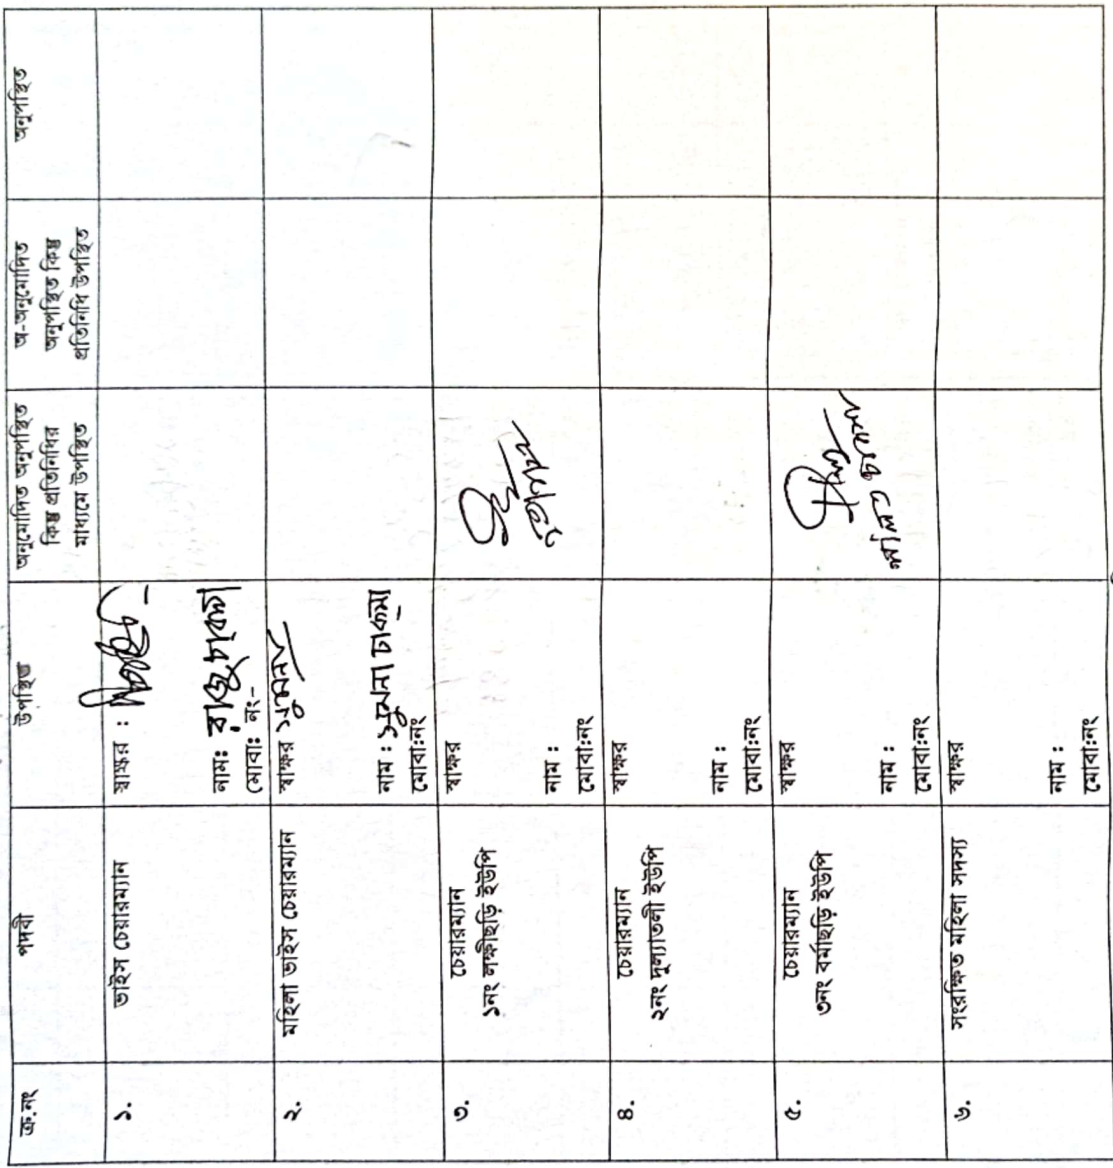 ক্র.নং
পদবী
উপস্থিত
অনুমোদিত অনুপস্থিত
কিন্তু প্রতিনিধির
মাধ্যমে উপস্থিত
অ-অনুমোদিত
অনুপস্থিত কিন্তু
প্রতিনিধি উপস্থিত
অনুপস্থিত
১.
ভাইস চেয়ারম্যান
স্বাক্ষর :
নাম: রাজু চাকমা
মোবা: নং-
২.
মহিলা ভাইস চেয়ারম্যান
স্বাক্ষর সুমনা
নাম : সুমনা চাকমা
মোবা:নং
৩.
চেয়ারম্যান
১নং লক্ষীছড়ি ইউপি
স্বাক্ষর
নাম :
মোবা:নং
৪.
চেয়ারম্যান
২নং দুল্যাতলী ইউপি
স্বাক্ষর
নাম :
মোবা:নং
৫.
চেয়ারম্যান
৩নং বর্মাছড়ি ইউপি
স্বাক্ষর
নাম :
মোবা:নং
৬.
সংরক্ষিত মহিলা সদস্য
স্বাক্ষর
নাম :
মোবা:নং